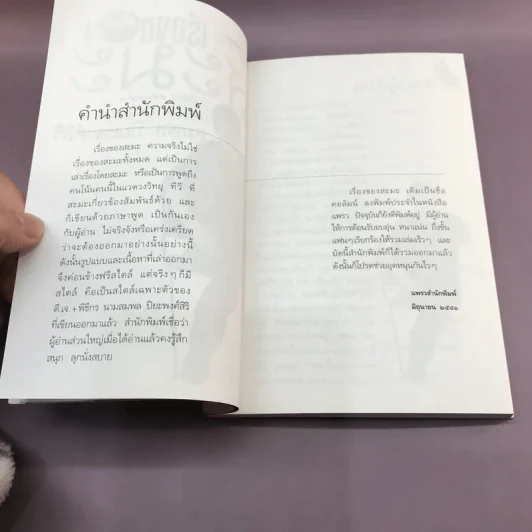 คำนำสำนักพิมพ์
เรื่องของสะมะ ความจริงไม่ใช่
เรื่องของสะมะทั้งหมด แต่เป็นการ
เล่าเรื่องโดยสะมะ หรือเป็นการพูดถึง
คนโน้นคนนี้ในแวดวงวิทยุ ทีวี ที่
สะมะเกี่ยวข้องสัมพันธ์ด้วย และ
ก็เขียนด้วยภาษาพูด เป็นกันเอง
กับผู้อ่าน ไม่จริงจังหรือเคร่งเครียด
ว่าจะต้องออกมาอย่างนั้นอย่างนี้
ดังนั้นรูปแบบและเนื้อหาที่เล่าออกมา
จึงค่อนข้างฟรีสไตล์ แต่จริงๆ ก็มี
สไตล์ คือเป็นสไตล์เฉพาะตัวของ
ดี.เจ.+พิธีกร นามสมพล ปิยะพงศ์สิริ
ที่เขียนออกมาแล้ว สำนักพิมพ์เชื่อว่า
ผู้อ่านส่วนใหญ่เมื่อได้อ่านแล้วคงรู้สึก
สนุก ลุกนั่งสบาย
เรื่องของสะมะ เดิมเป็นชื่อ
คอลัมน์ ลงพิมพ์ประจำในหนังสือ
แพรว ปัจจุบันก็ยังตีพิมพ์อยู่ มีผู้อ่าน
ให้การต้อนรับอบอุ่น หนาแน่น ถึงขั้น
แฟนๆ เรียกร้องให้รวมเล่มเร็วๆ และ
บัดนี้สำนักพิมพ์ก็ได้รวมออกมาแล้ว
ดังนั้นก็โปรดช่วยอุดหนุนกันไวๆ
แพรวสำนักพิมพ์
มิถุนายน ๒๕๔๑